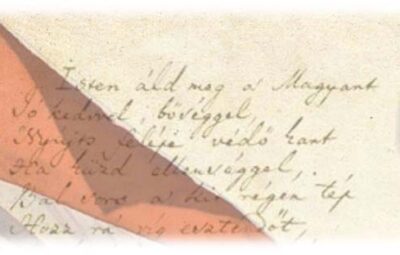 Isten áld meg a' Magyart
Jó kedvvel, bőséggel,
Nyújts feléje védő kart
Ha küzd ellenséggel,
Bal sors a' kit régen tép
Hozz rá víg esztendőt,